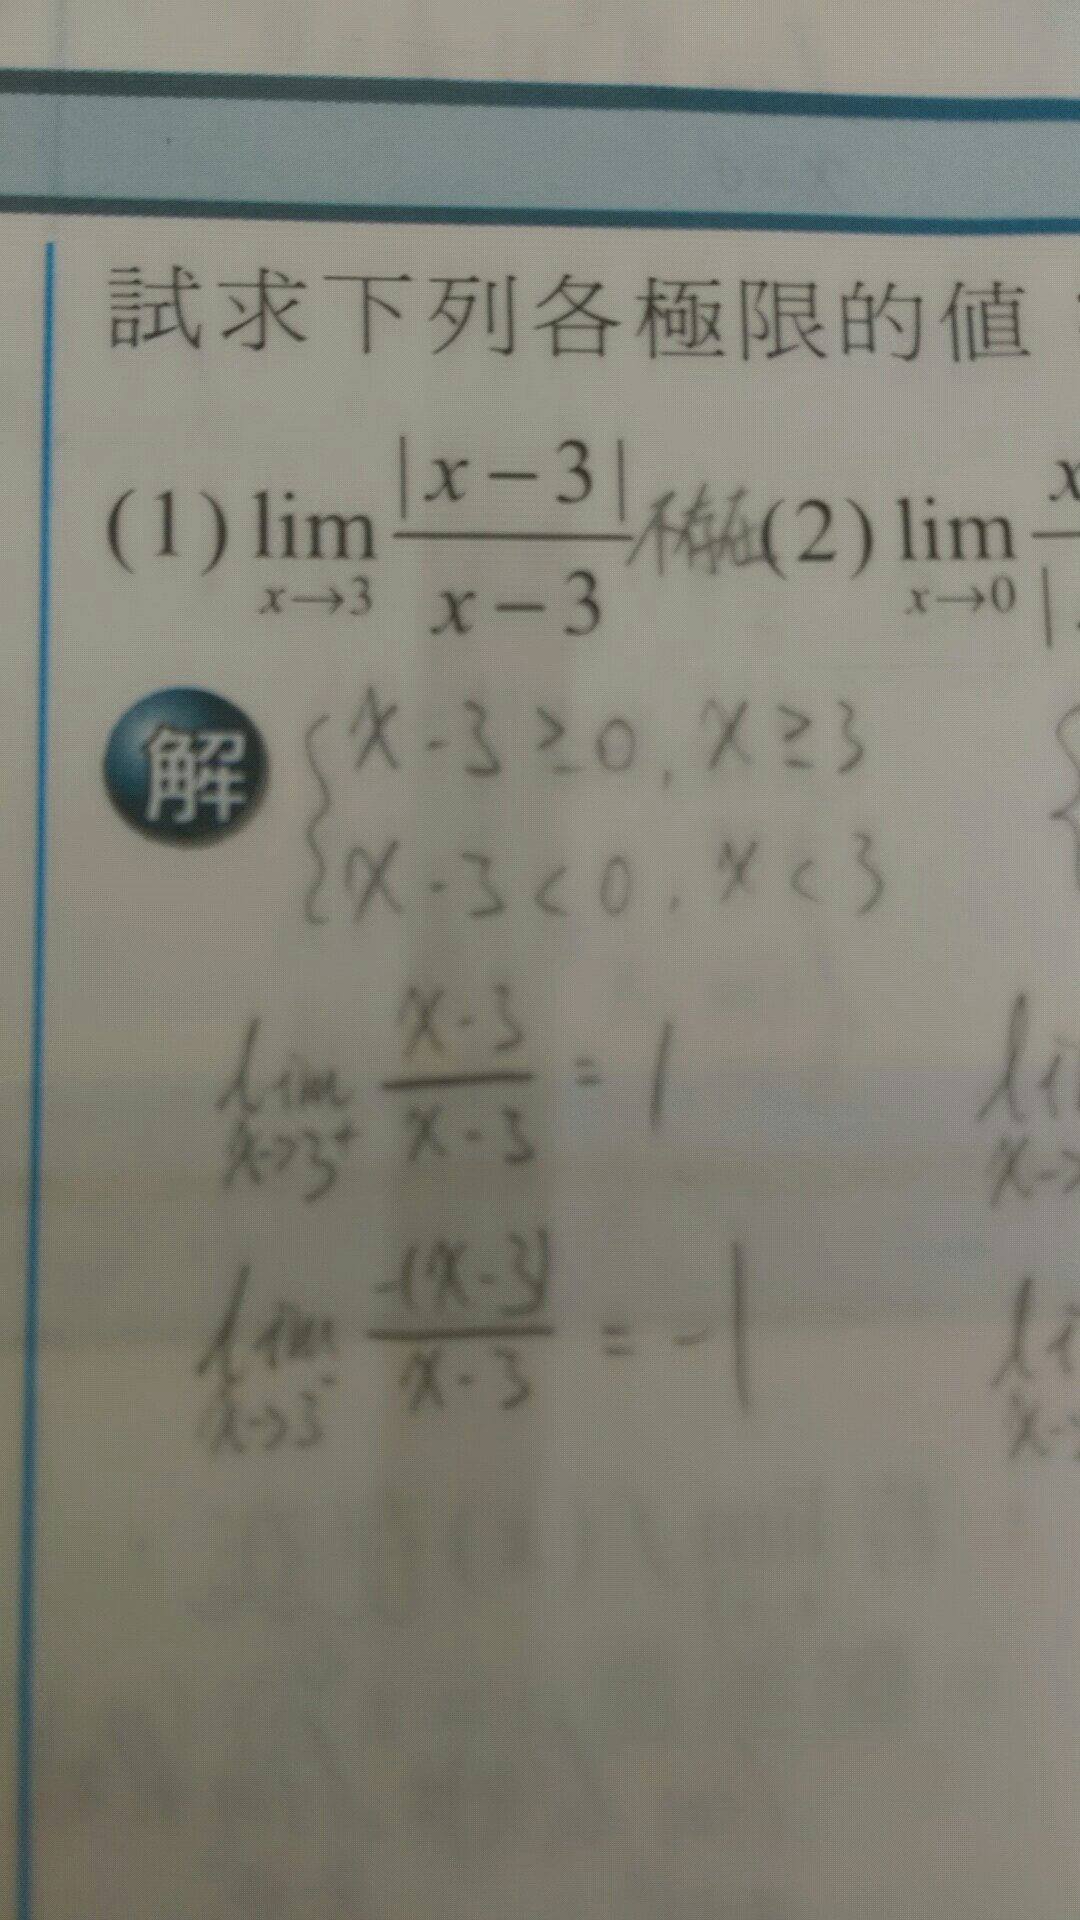 試求下列各極限的值
(1) lim x→3 |x-3| / x-3 不存在 (2) lim x→0 x
解 { x-3≥0, x≥3
{ x-3<0, x<3
lim x→3⁺ x-3 / x-3 = 1
lim x→3⁻ -(x-3) / x-3 = -1